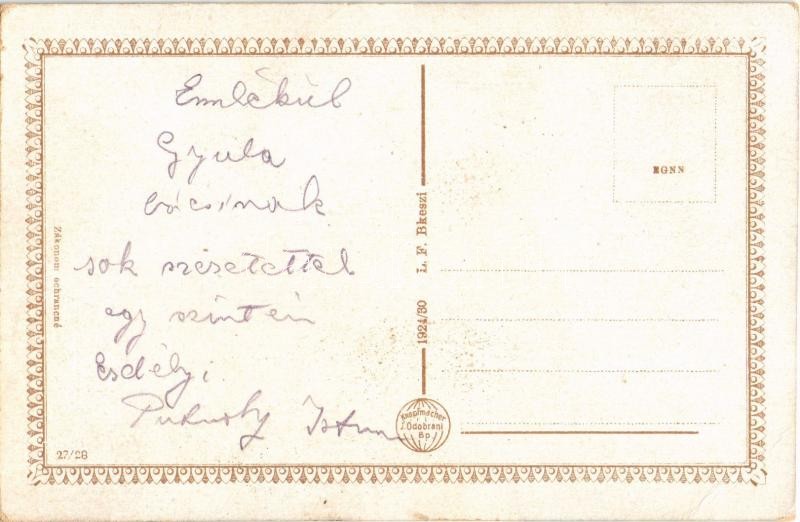 Emlékül
Gyula
bácsinak
sok szeretettel
egy szintén
Erdélyi
István
Zákonom ochranené
27/28
1924/30 L. F. Bkeszi
Knapfmacher
Odobrani
Bp
EGNN